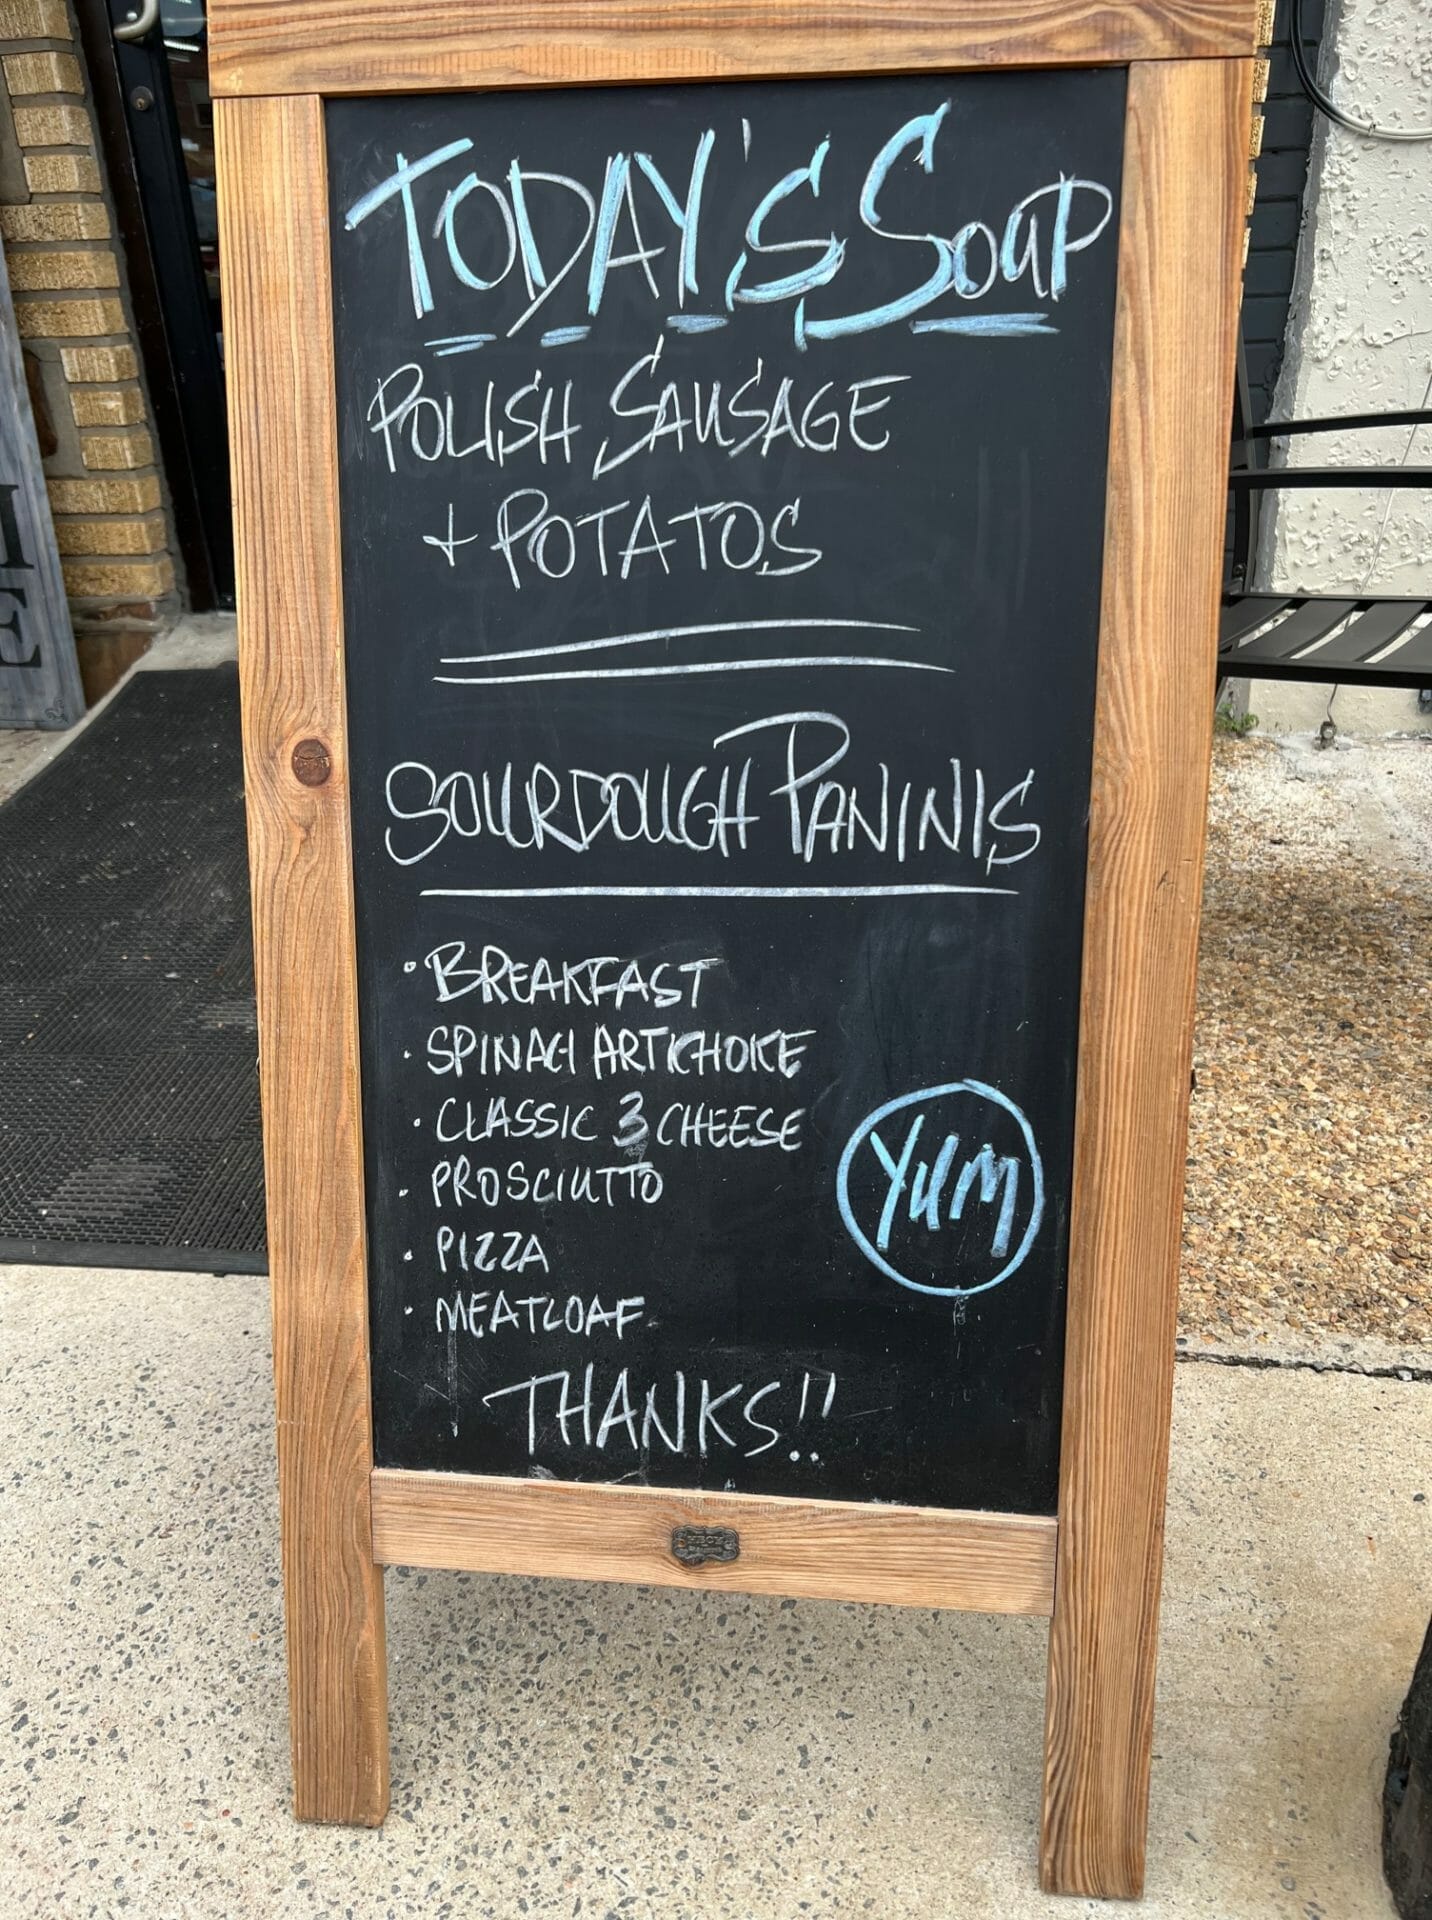 TODAY'S SOUP
POLISH SAUSAGE
+ POTATOS
SOURDOUGH PANINIS
• BREAKFAST
• SPINACH ARTICHOKE
• CLASSIC 3 CHEESE
• PROSCIUTTO
• PIZZA
• MEATLOAF
YUM
THANKS!!